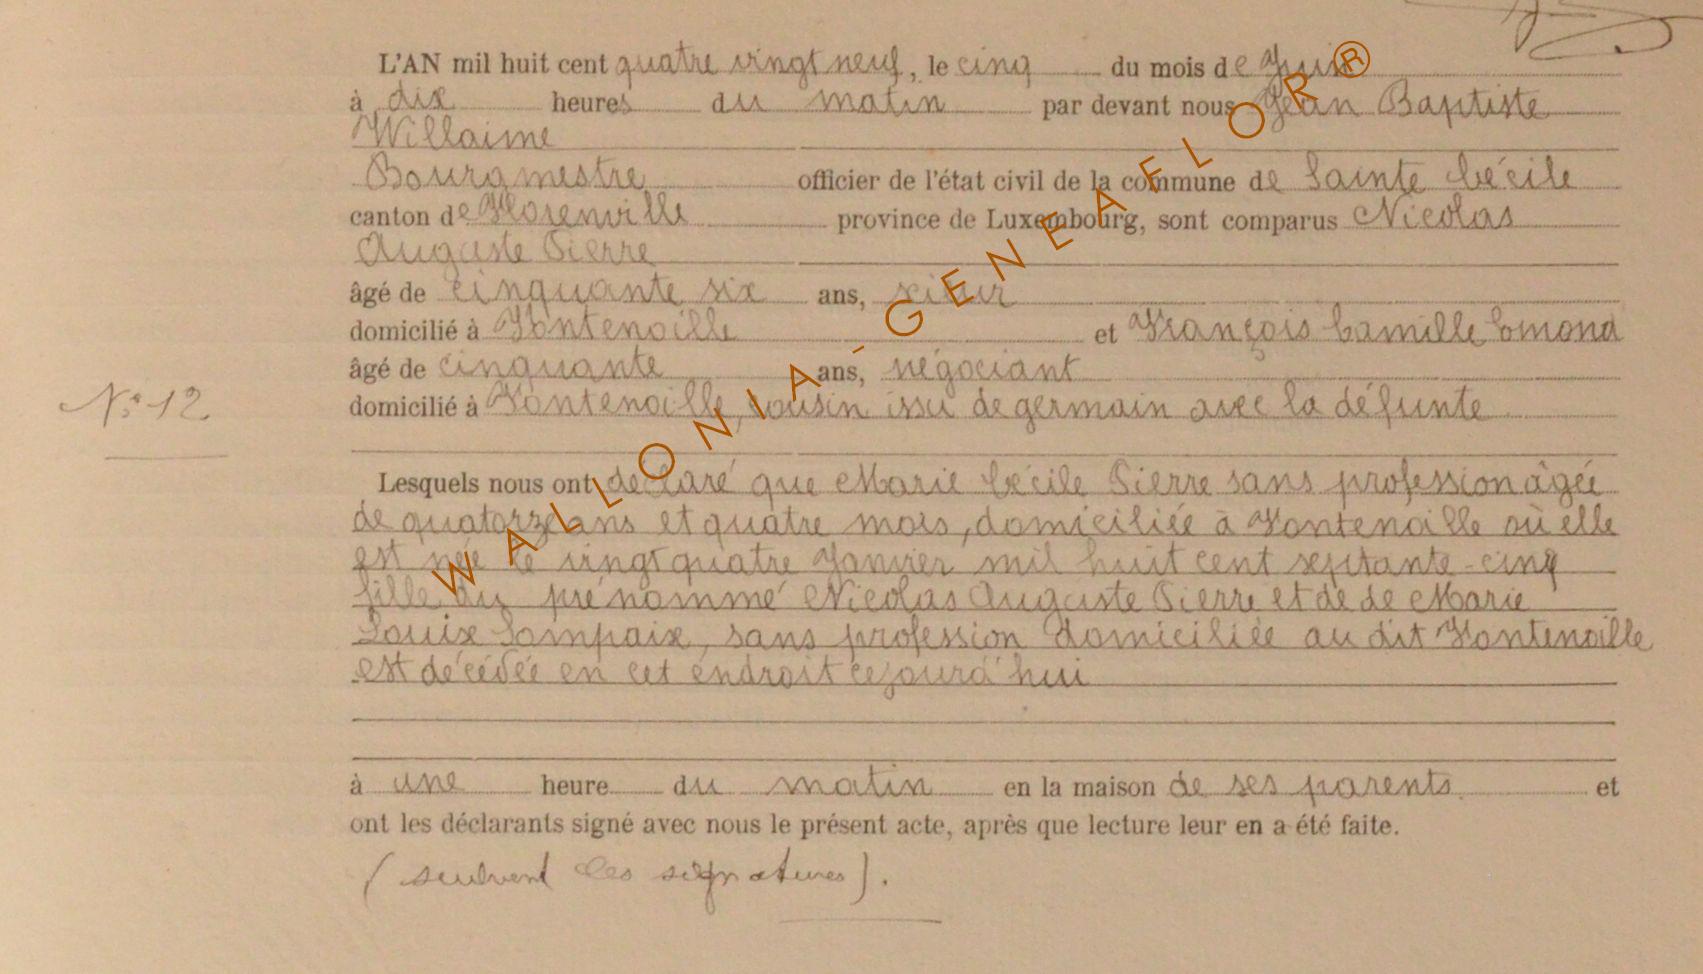 L'AN mil huit cent quatre vingt neuf, le cinq du mois de Juin
à dix heures du matin par devant nous Jean Baptiste
Willaime
Bourgmestre officier de l'état civil de la commune de Sainte Cécile
canton de Florenville province de Luxembourg, sont comparus Nicolas
Auguste Pierre
âgé de cinquante six ans, scieur
domicilié à Fontenoille et François Camille Emond
âgé de cinquante ans, négociant
N° 12
domicilié à Fontenoille, cousin issu de germain avec la défunte
Lesquels nous ont déclaré que Marie Cécile Pierre sans profession âgée
de quatorze ans et quatre mois, domiciliée à Fontenoille où elle
est née le vingt quatre Janvier mil huit cent septante-cinq
fille du prénommé Nicolas Auguste Pierre et de de Marie
Louise Lompaix, sans profession domiciliée au dit Fontenoille
est décédée en cet endroit cejourd'hui
à une heure du matin en la maison de ses parents. et
ont les déclarants signé avec nous le présent acte, après que lecture leur en a été faite.
(suivent les signatures).
WALLONIA-GENEAFLOR®